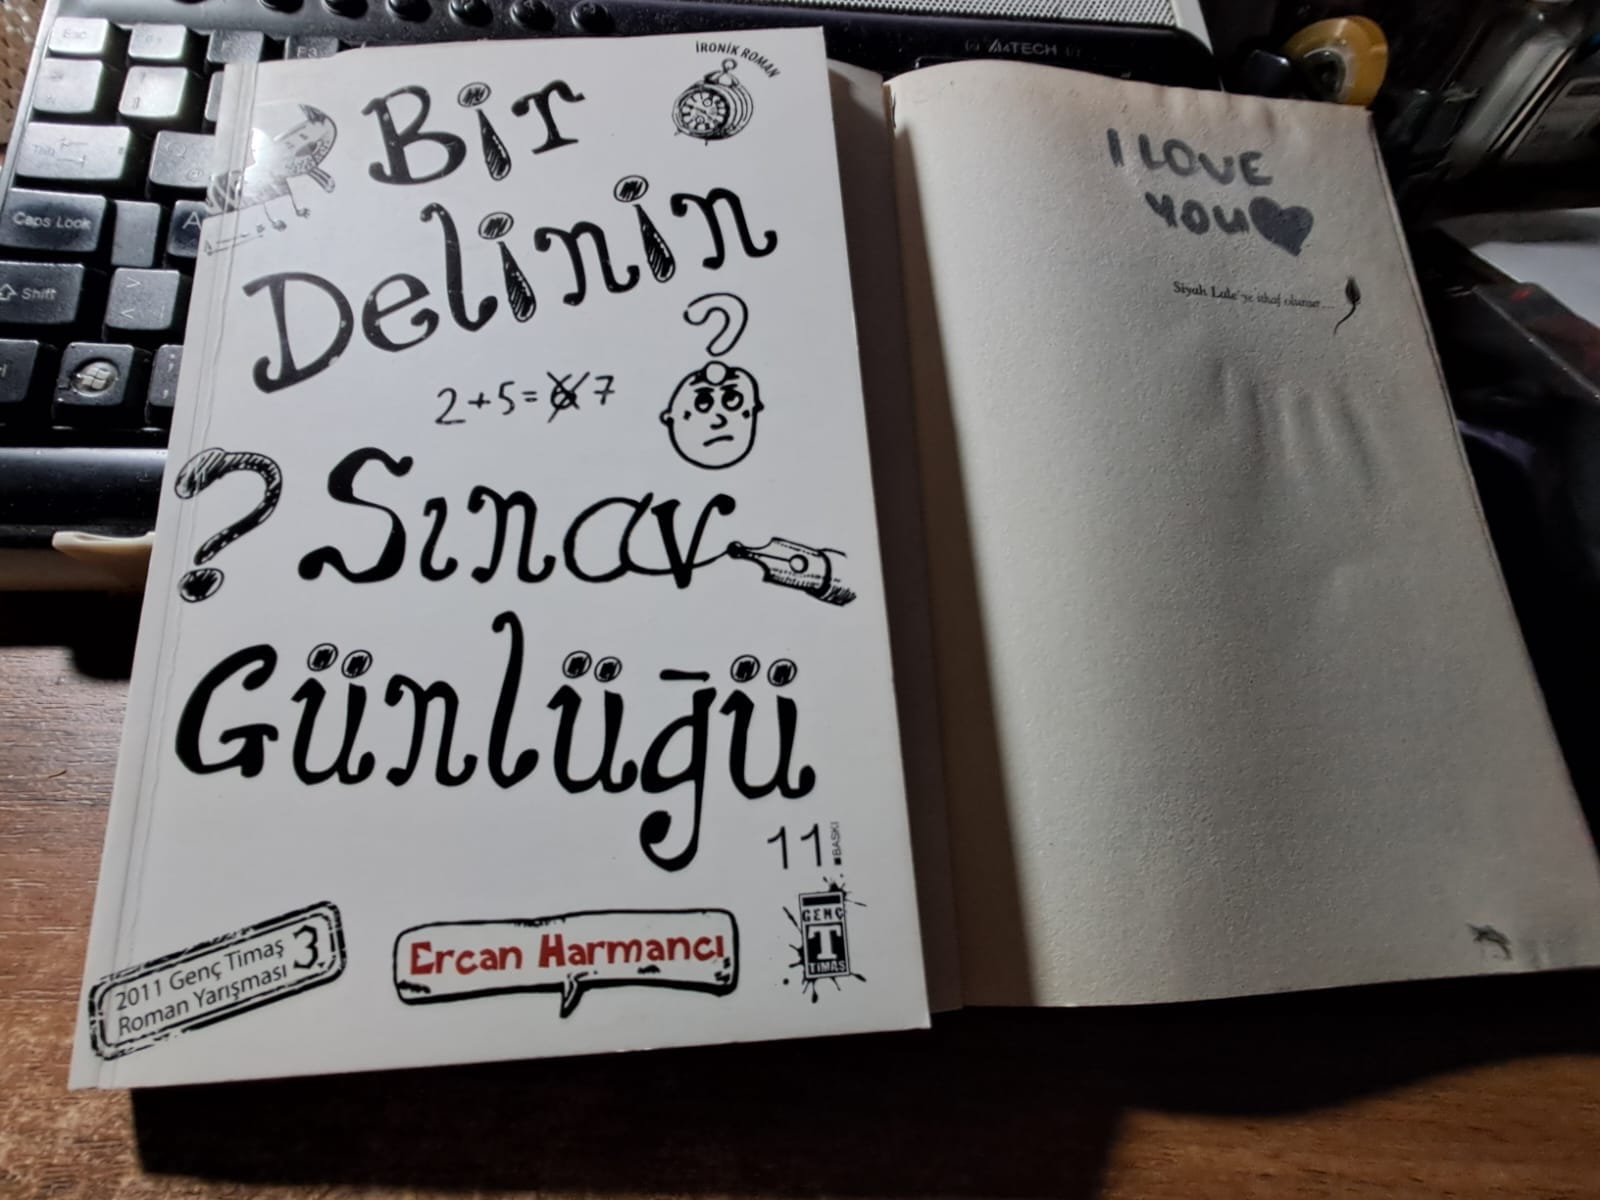 Esc
F3
Caps Lock
A
Shift
A4TECH
İRONİK ROMAN
Bir
Delinin
2+5= 6 7
?
Sınav
?
Günlüğü
11
BASKI
2011 Genç Timaş
Roman Yarışması
3
Ercan Harmancı
GENÇ
T
TİMAŞ
I LOVE
YOU
Siyah Lale'ye ithaf olunur...